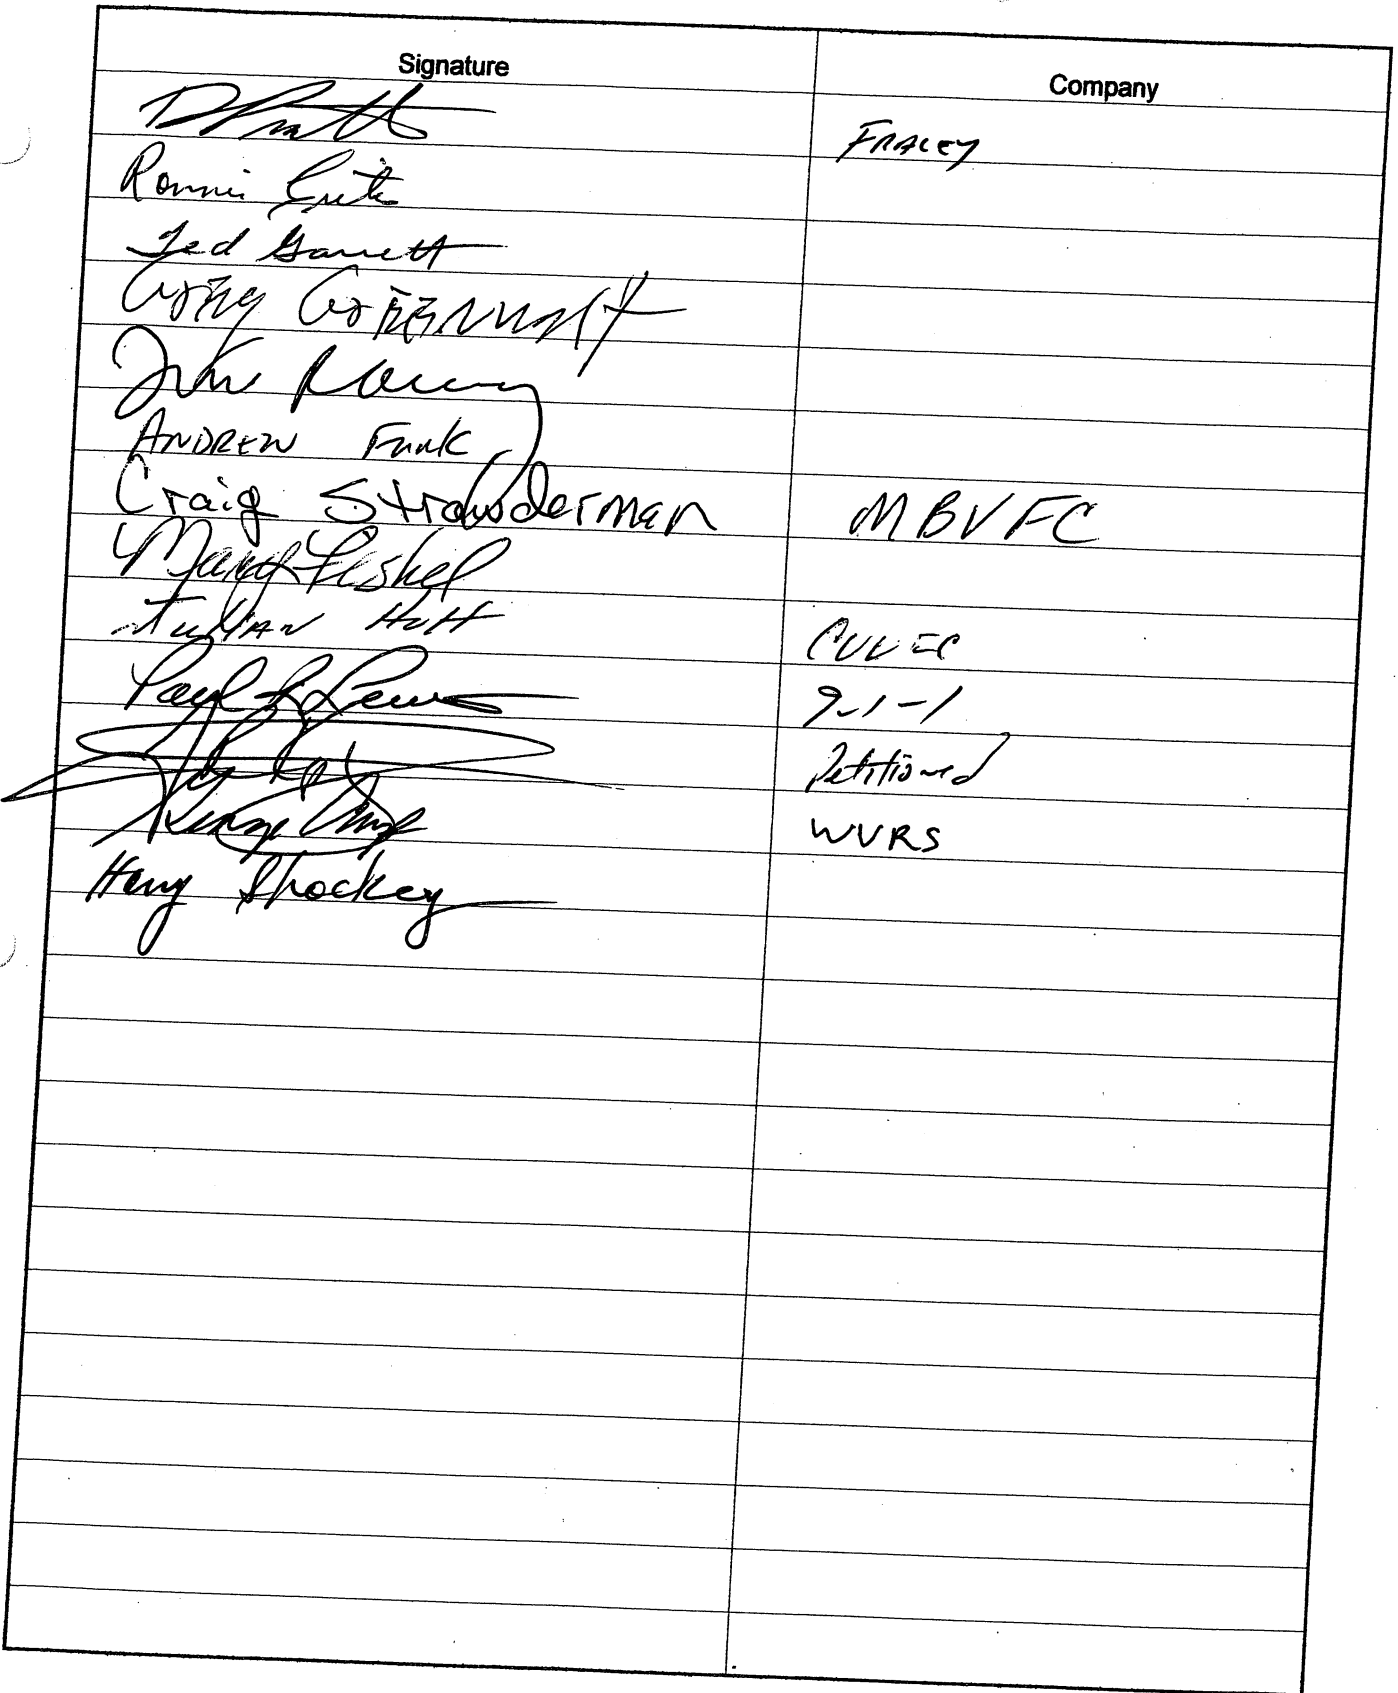 Signature Company
D Pratt FRALEY
Ronnie
Ted Garrett
Greg
ANDREW Funk
Craig Strawderman MBVFC
Mary Fishel
Julian Huff CVVFC
Paul Lewis 9-1-1
Petitioned
WVRS
Harry Shockey